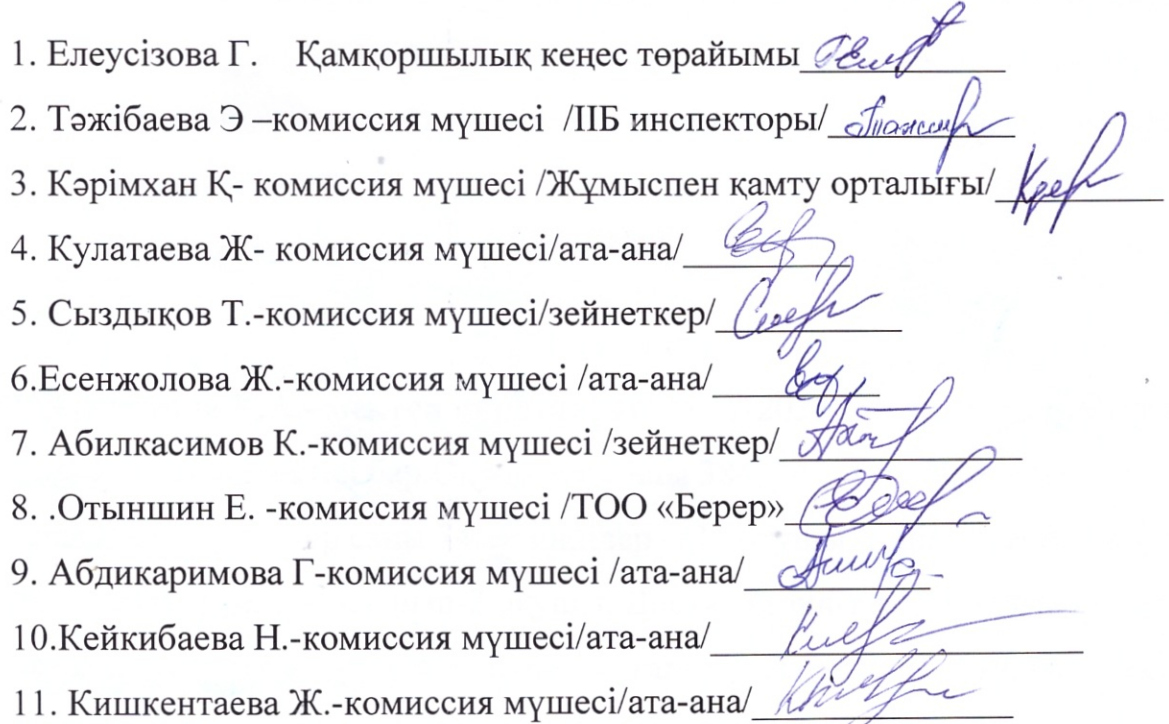 1. Елеусізова Г. Қамқоршылық кеңес төрайымы
2. Тәжібаева Э –комиссия мүшесі /ІІБ инспекторы/
3. Кәрімхан Қ- комиссия мүшесі /Жұмыспен қамту орталығы/
4. Кулатаева Ж- комиссия мүшесі/ата-ана/
5. Сыздықов Т.-комиссия мүшесі/зейнеткер/
6.Есенжолова Ж.-комиссия мүшесі /ата-ана/
7. Абилкасимов К.-комиссия мүшесі /зейнеткер/
8. .Отыншин Е. -комиссия мүшесі /ТОО «Берер»
9. Абдикаримова Г-комиссия мүшесі /ата-ана/
10.Кейкибаева Н.-комиссия мүшесі/ата-ана/
11. Кишкентаева Ж.-комиссия мүшесі/ата-ана/